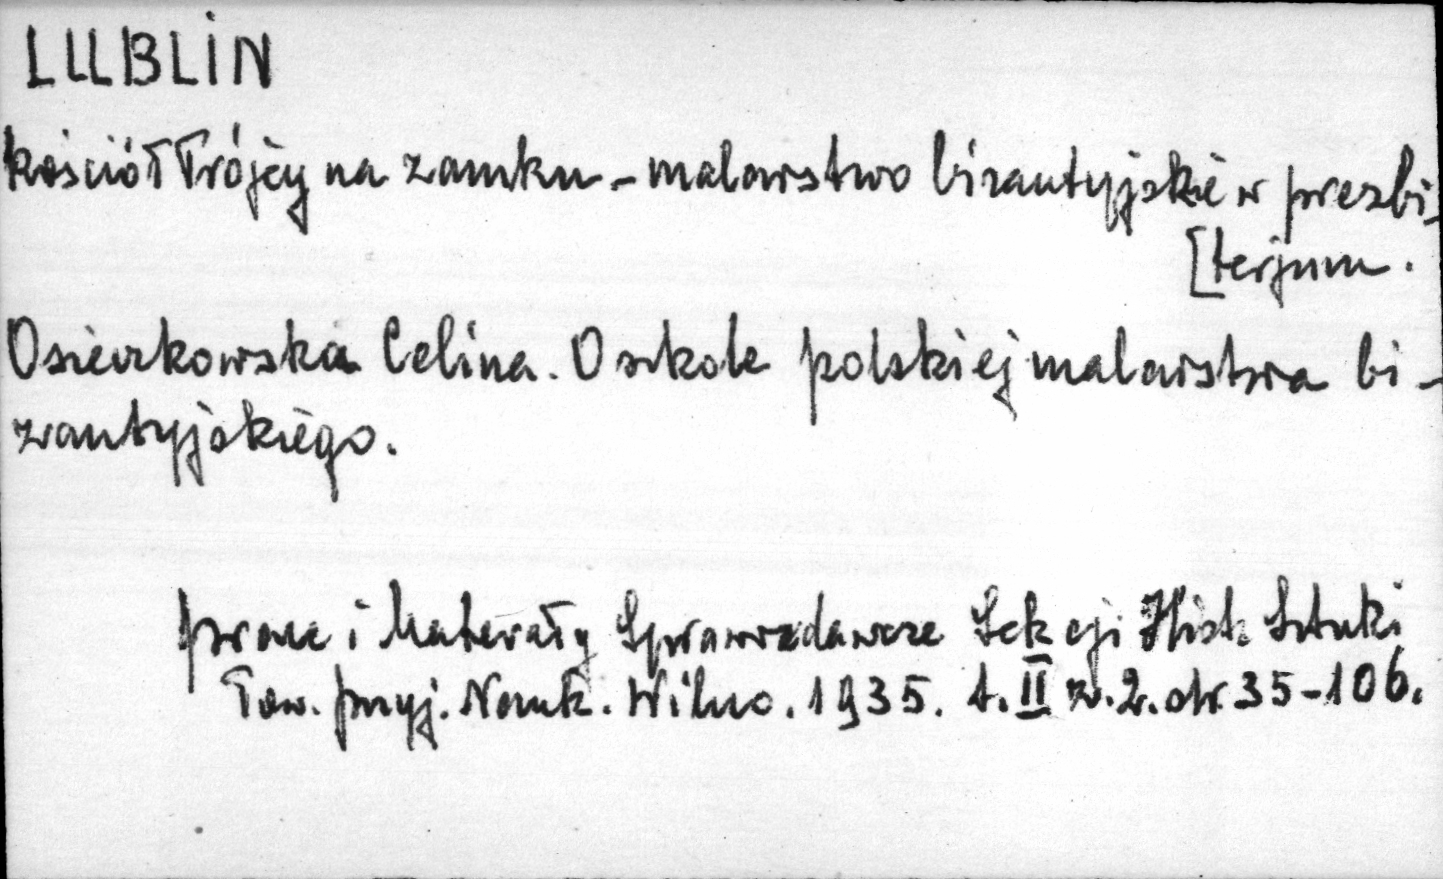 LUBLIN
kościół Trójcy na zamku - malarstwo bizantyjskie w prezbi-
[terjum.
Osieczkowska Celina. O szkole polskiej malarstwa bi-
zantyjskiego.
Prace i Materały Sprawozdawcze Sekcji Hist. Sztuki
Tow. Przyj. Nauk. Wilno. 1935. t. II z. 2. str. 35-106.